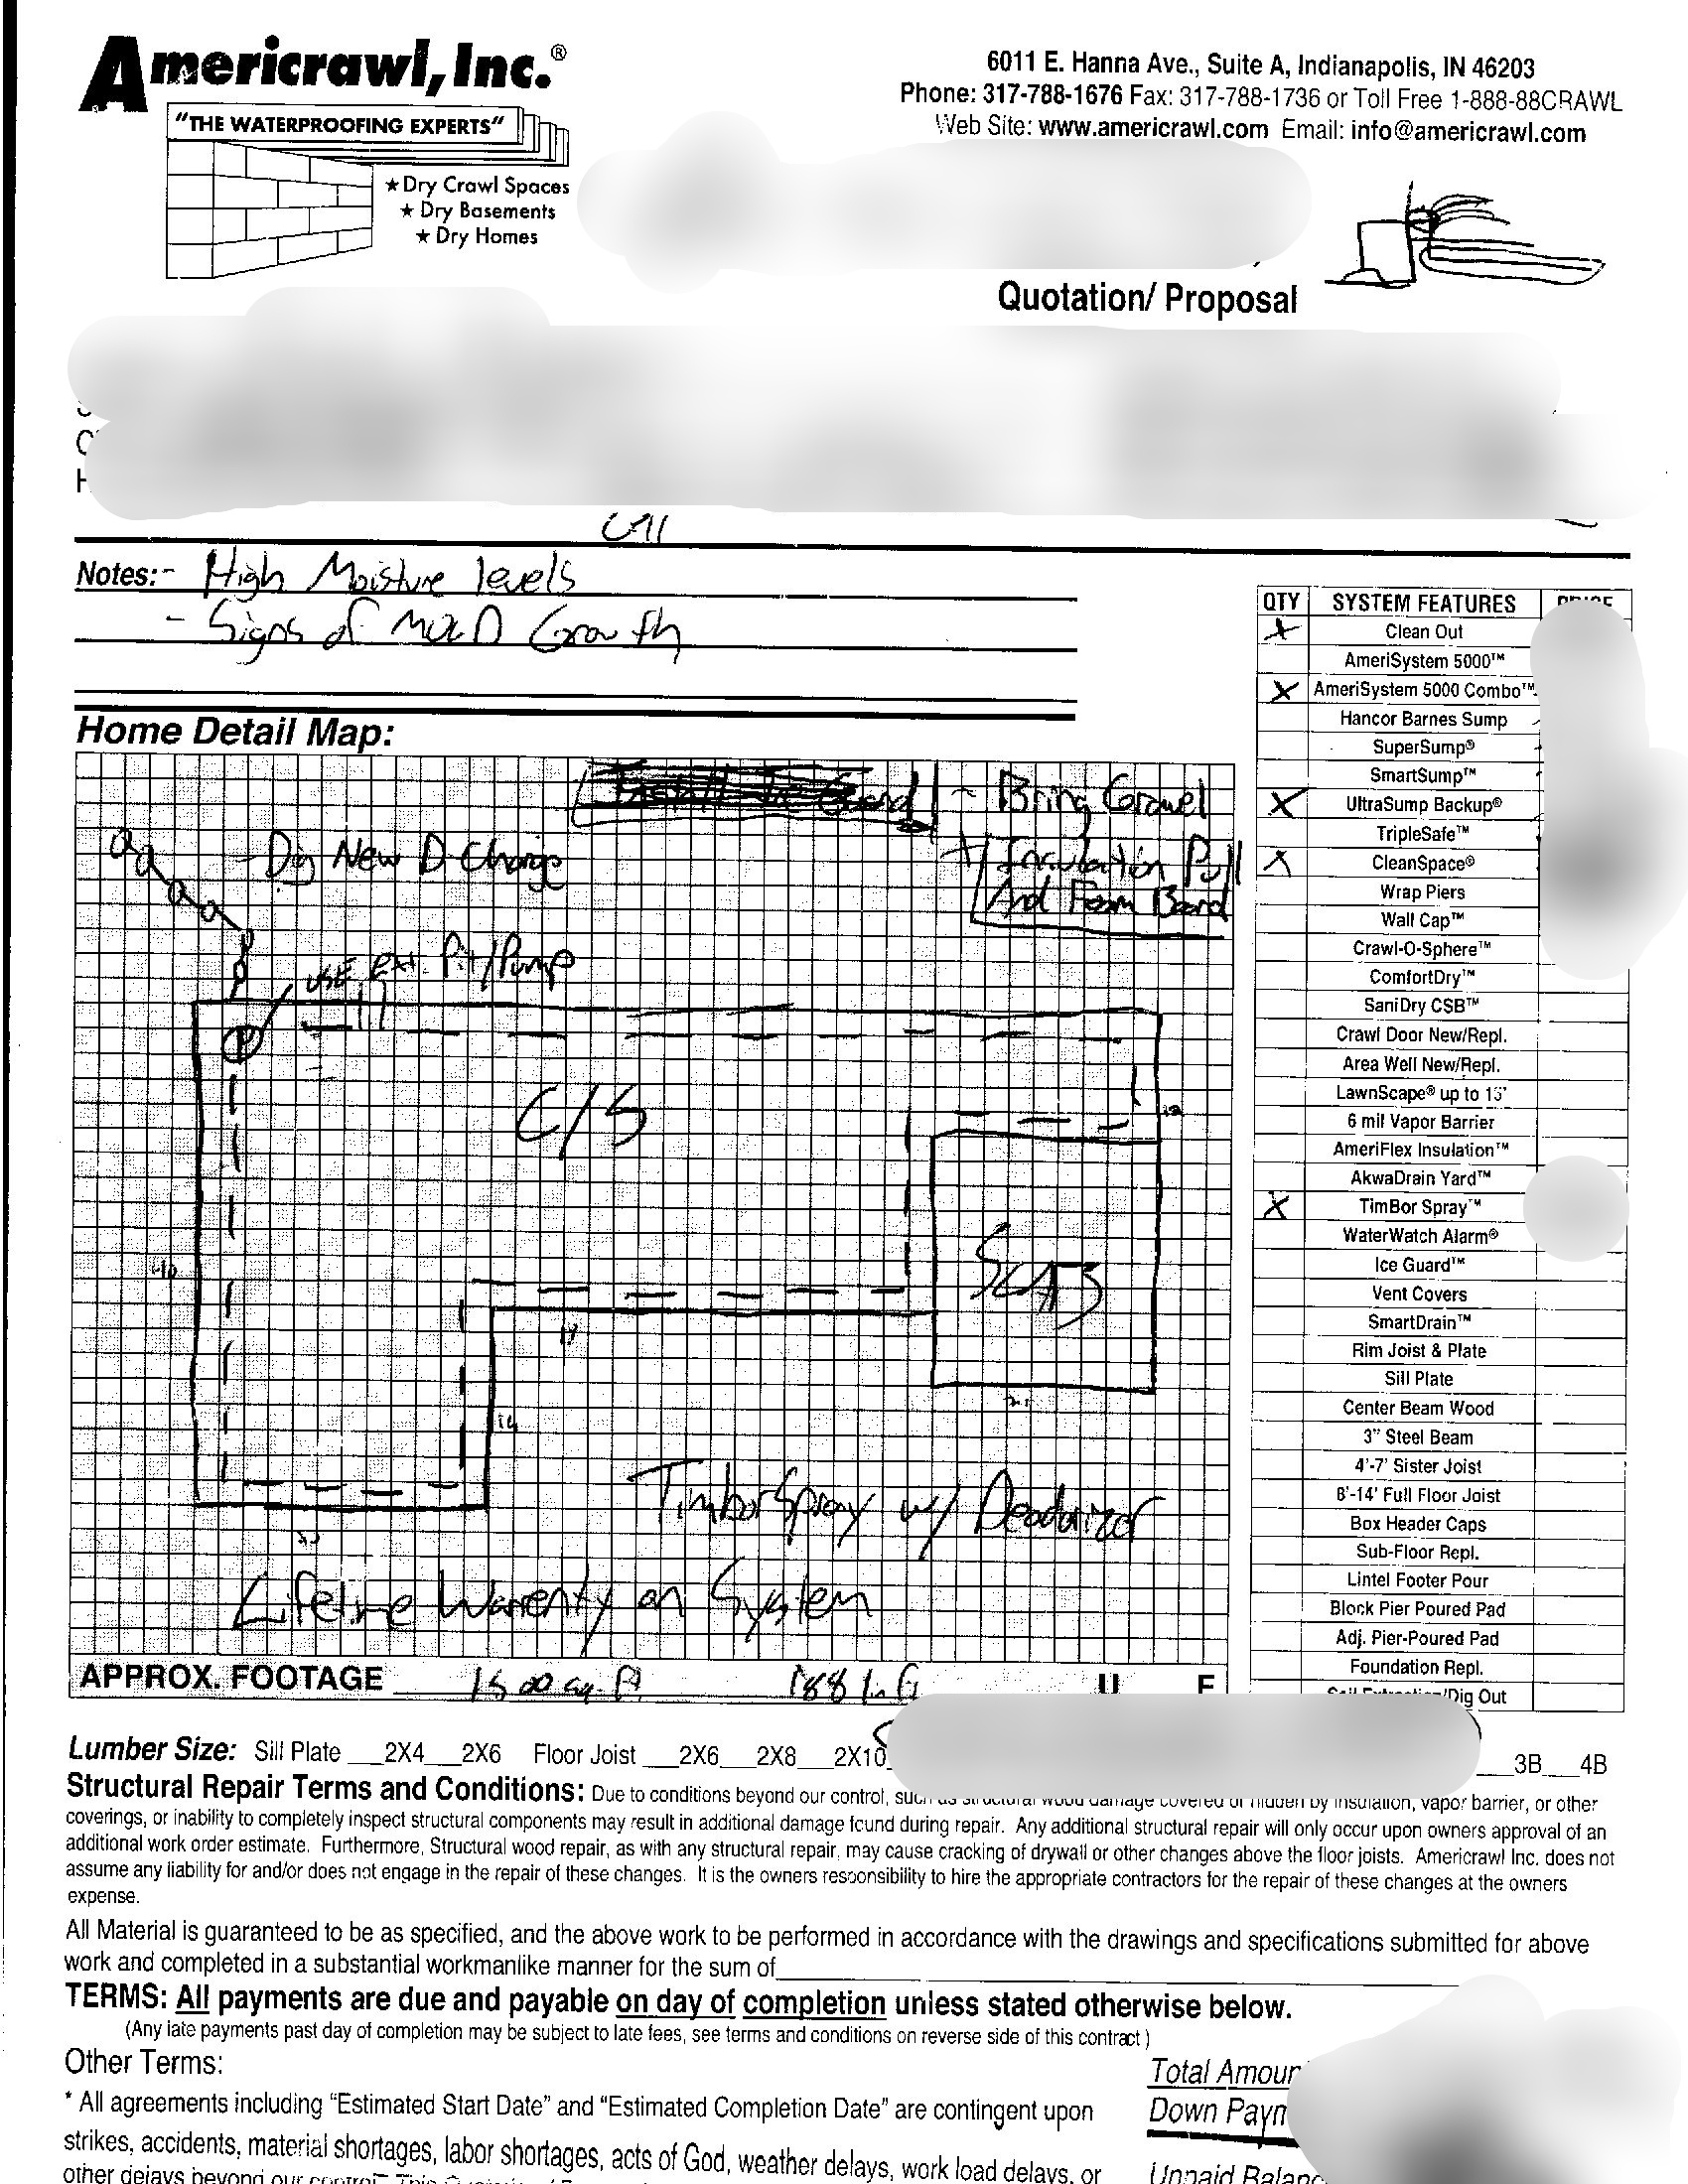 Americrawl, Inc.®
"THE WATERPROOFING EXPERTS"
★ Dry Crawl Spaces
★ Dry Basements
★ Dry Homes
6011 E. Hanna Ave., Suite A, Indianapolis, IN 46203
Phone: 317-788-1676 Fax: 317-788-1736 or Toll Free 1-888-88CRAWL
Web Site: www.americrawl.com Email: info@americrawl.com
Quotation/ Proposal
Notes: - High Moisture levels
- Signs of MOLD Growth
QTY SYSTEM FEATURES
X Clean Out
AmeriSystem 5000™
X AmeriSystem 5000 Combo™
Hancor Barnes Sump
SuperSump®
SmartSump™
X UltraSump Backup®
TripleSafe™
X CleanSpace®
Wrap Piers
Wall Cap™
Crawl-O-Sphere™
ComfortDry™
SaniDry CSB™
Crawl Door New/Repl.
Area Well New/Repl.
LawnScape® up to 15'
6 mil Vapor Barrier
AmeriFlex Insulation™
AkwaDrain Yard™
X TimBor Spray™
WaterWatch Alarm®
Ice Guard™
Vent Covers
SmartDrain™
Rim Joist & Plate
Sill Plate
Center Beam Wood
3" Steel Beam
4'-7' Sister Joist
8'-14' Full Floor Joist
Box Header Caps
Sub-Floor Repl.
Lintel Footer Pour
Block Pier Poured Pad
Adj. Pier-Poured Pad
Foundation Repl.
/Dig Out
Home Detail Map:
- Bring Gravel
- Dig New D-Charge
+ Insulation Pull
And Foam Board
USE Ext. Pit/Pump
C/S
12
40
SLAB
14
TimborSpray w/ Deodorizer
Lifetime Warenty on System
APPROX. FOOTAGE 1500 sq. ft. 188 Ln Ft
Lumber Size: Sill Plate ___2X4___2X6 Floor Joist ___2X6___2X8___2X10 ___3B___4B
Structural Repair Terms and Conditions: Due to conditions beyond our control, such as structural wood damage covered or hidden by insulation, vapor barrier, or other
coverings, or inability to completely inspect structural components may result in additional damage found during repair. Any additional structural repair will only occur upon owners approval of an
additional work order estimate. Furthermore, Structural wood repair, as with any structural repair, may cause cracking of drywall or other changes above the floor joists. Americrawl Inc. does not
assume any liability for and/or does not engage in the repair of these changes. It is the owners responsibility to hire the appropriate contractors for the repair of these changes at the owners
expense.
All Material is guaranteed to be as specified, and the above work to be performed in accordance with the drawings and specifications submitted for above
work and completed in a substantial workmanlike manner for the sum of
TERMS: All payments are due and payable on day of completion unless stated otherwise below.
(Any late payments past day of completion may be subject to late fees, see terms and conditions on reverse side of this contract)
Other Terms:
Total Amoun
* All agreements including "Estimated Start Date" and "Estimated Completion Date" are contingent upon
Down Paym
strikes, accidents, material shortages, labor shortages, acts of God, weather delays, work load delays, or
other delays beyond our control. This
Unpaid Balanc